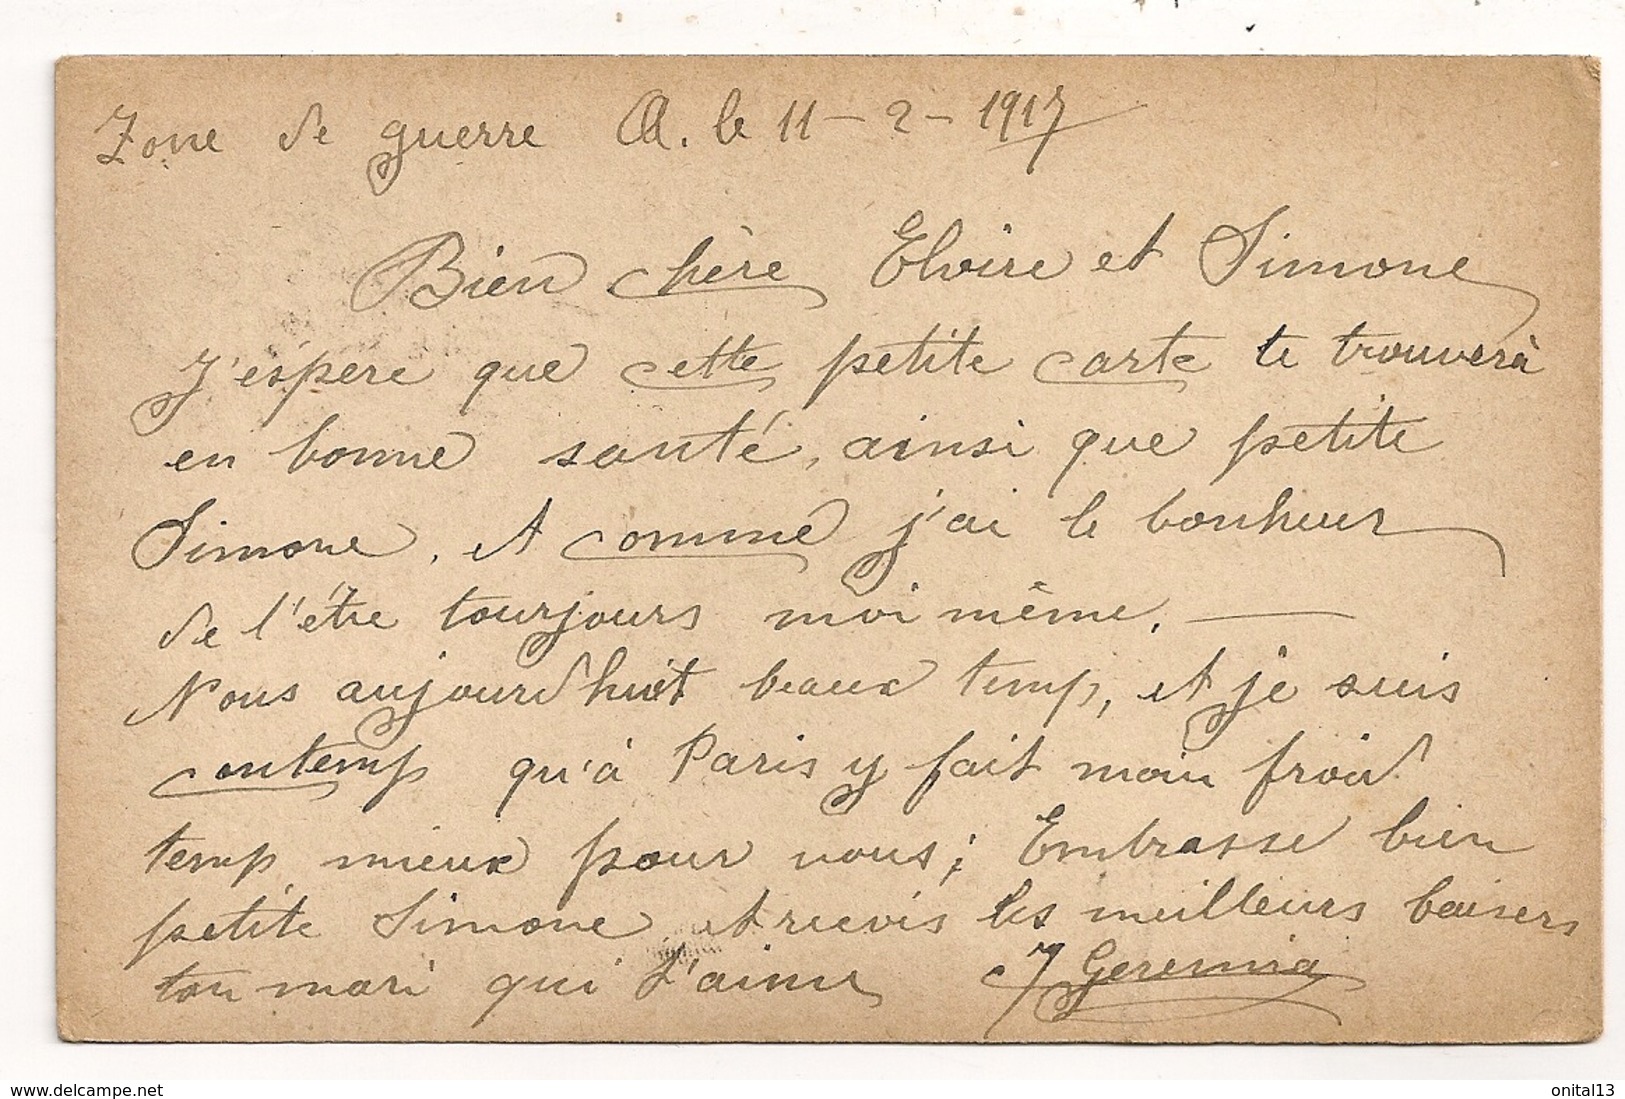 Zone de guerre A. le 11-2-1917
Bien chère Elvire et Simone
J'éspère que cette petite carte te trouverà
en bonne santé, ainsi que petite
Simone, et comme j'ai le bonheur
de l'être tourjours moi même. —
Nous aujourd'huit beaux temp, et je suis
contemp qu'à Paris y fait moin froid
temp mieux pour vous; Embrasse bien
petite Simone et recevis les meilleurs baisers
ton mari qui t'aime J Geremia
www.delcampe.net
onital13